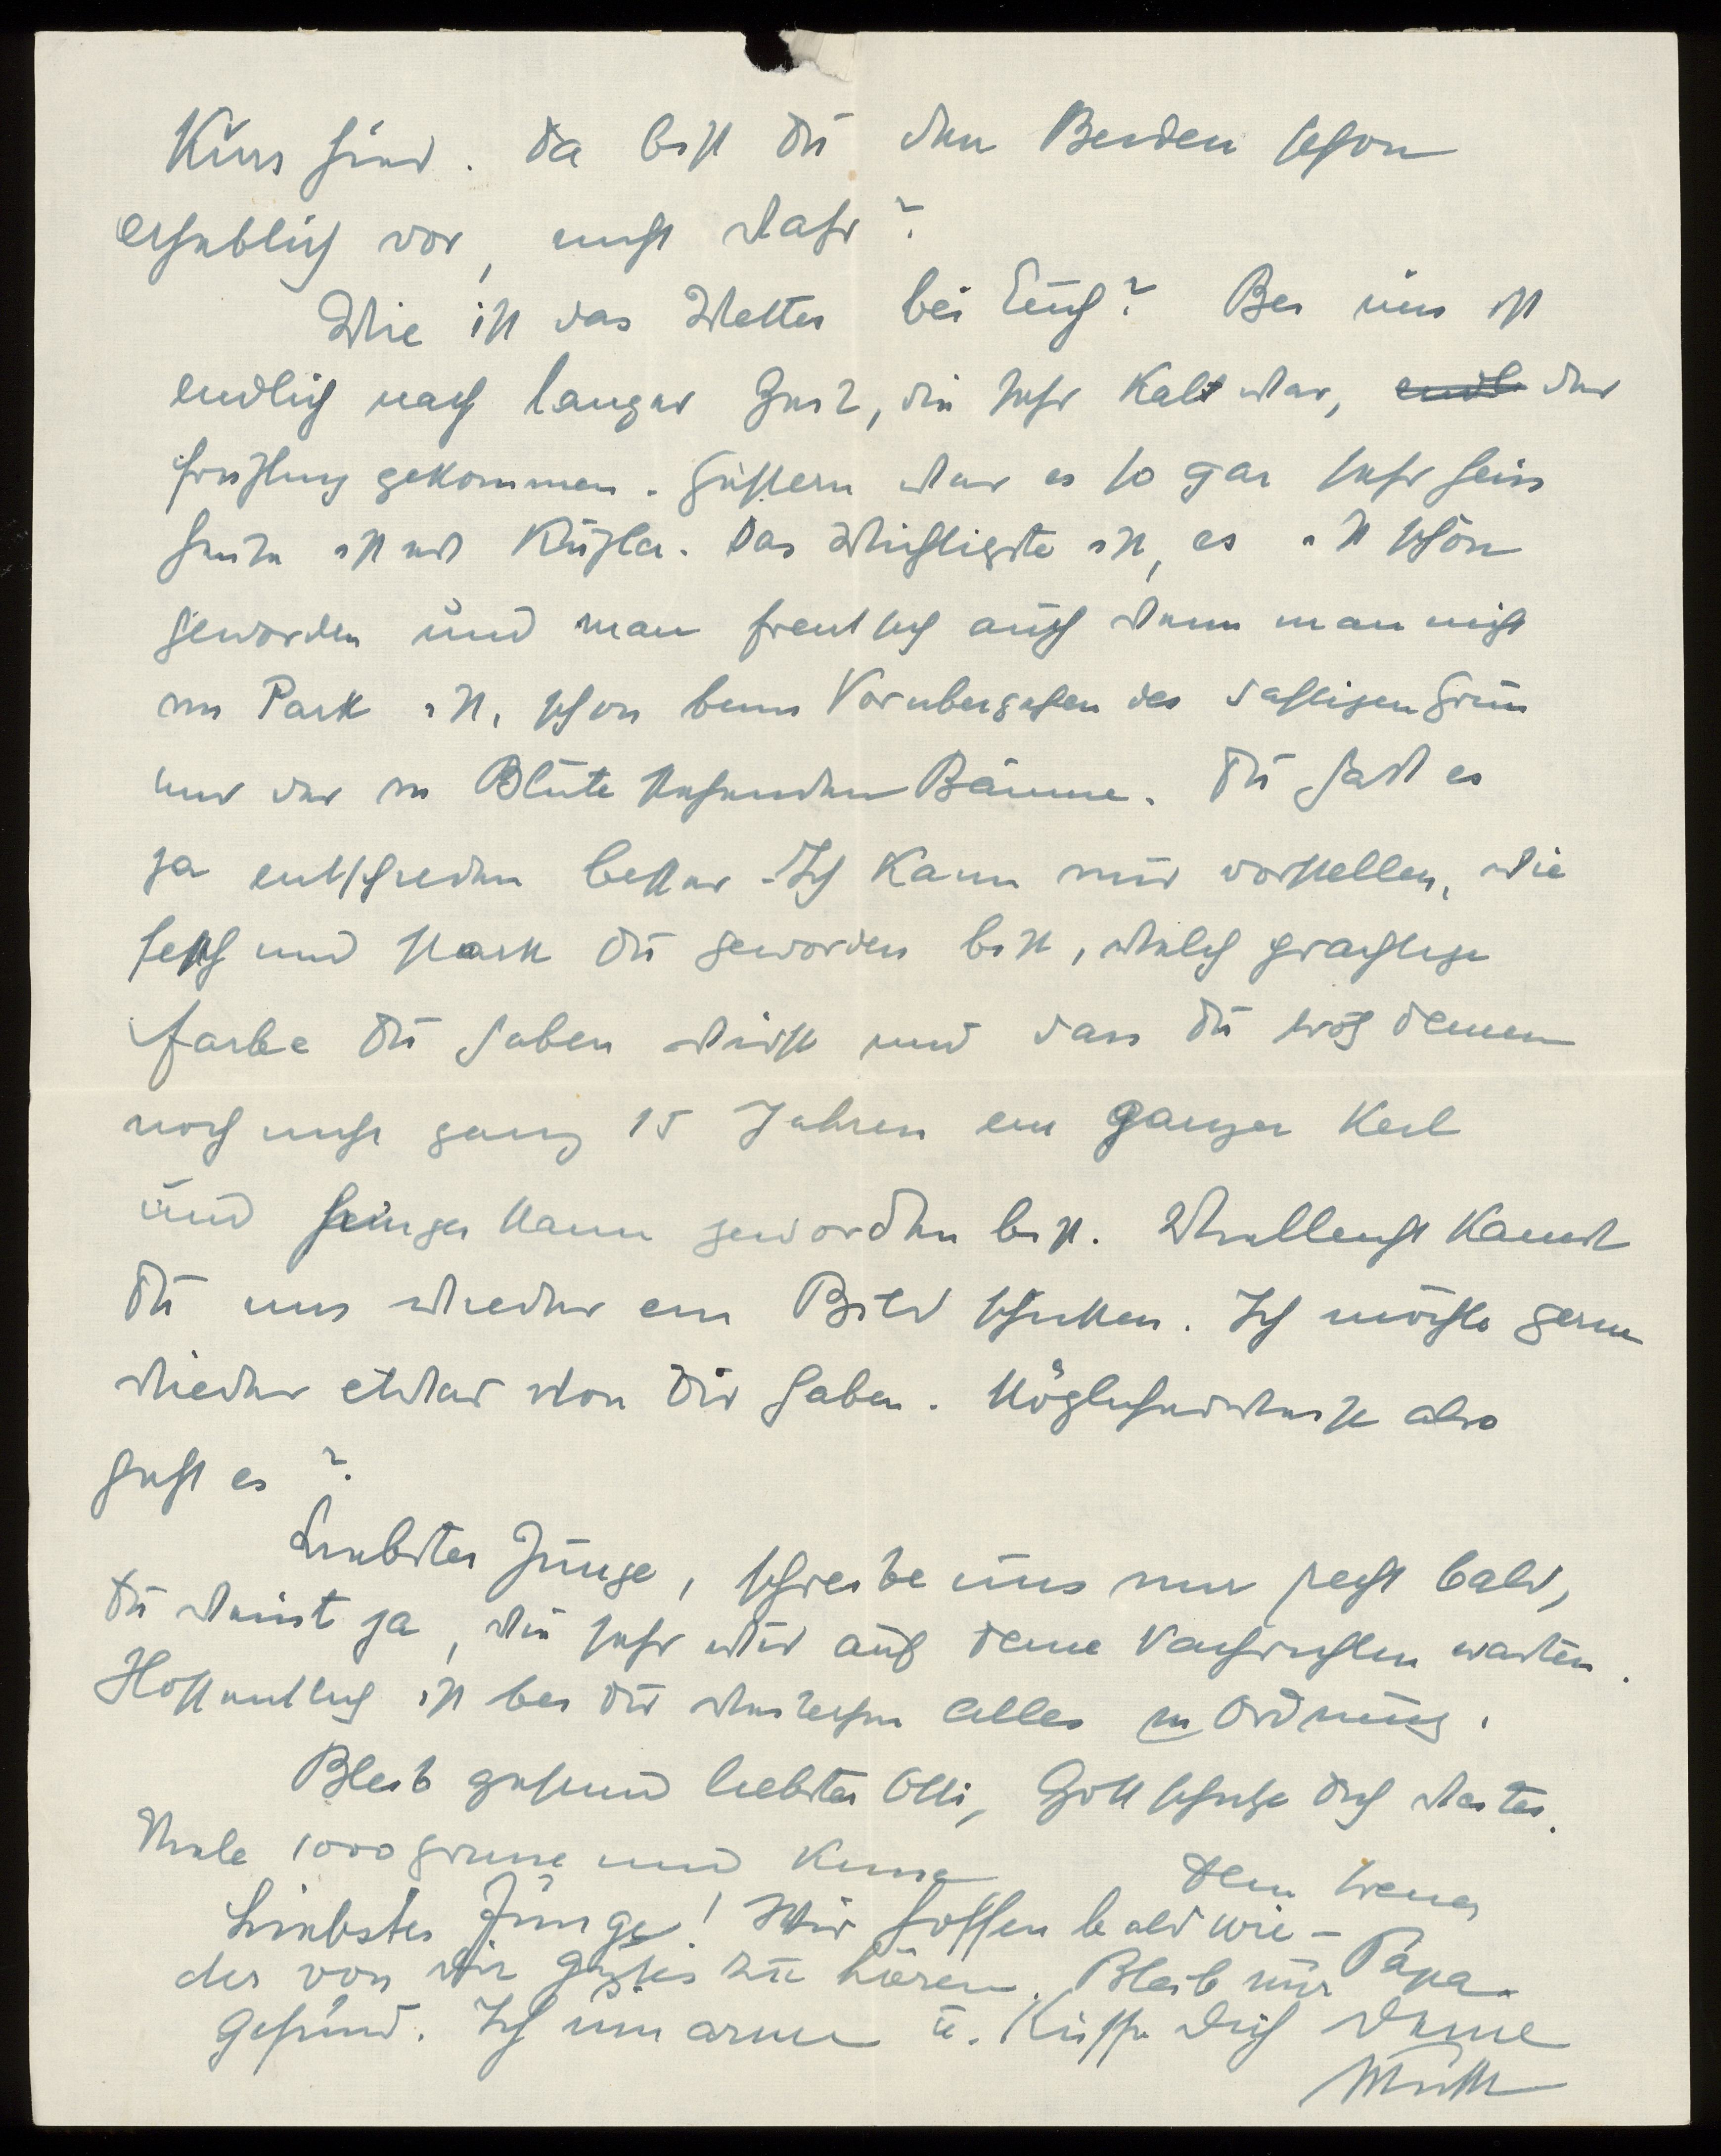 Kurs sind. Da bist Du den Beiden schon
erheblich vor, nicht wahr?
Wie ist das Wetter bei Euch? Bei uns ist
endlich nach langer Zeit, die sehr kalt war, der
Frühling gekommen. Gestern war es so gar sehr heiss
heute ist es kühler. Das Wichtigste ist, es ist schön
geworden und man freut sich auch wenn man nicht
im Park ist, schon beim Vorübergehen des saftigen Grün
und der in Blüte stehenden Bäume. Du hast es
ja entschieden besser. Ich kann mir vorstellen, wie
fesch und stark Du geworden bist, welch prächtige
Farbe Du haben wirst und dass Du trotz deinen
noch nicht ganz 15 Jahren ein ganzer Kerl
und junger Mann geworden bist. Vielleicht kannst
Du uns wieder ein Bild schicken. Ich möchte gerne
wieder etwas von Dir haben. Möglicherweise also
geht es?
Liebster Junge, schreibe uns nur recht bald,
Du weisst ja, wie sehr wir auf deine Nachrichten warten.
Hoffentlich ist bei Dir weiterhin alles in Ordnung.
Bleib gesund liebster Olli, Gott schütze Dich weiter.
Viele 1000 Grüsse und Küsse Dein treuer
Papa.
Liebster Junge! Wir hoffen bald wie-
der von Dir gutes zu hören. Bleib nur
gesund. Ich umarme u. küsse Dich Deine
Mutti